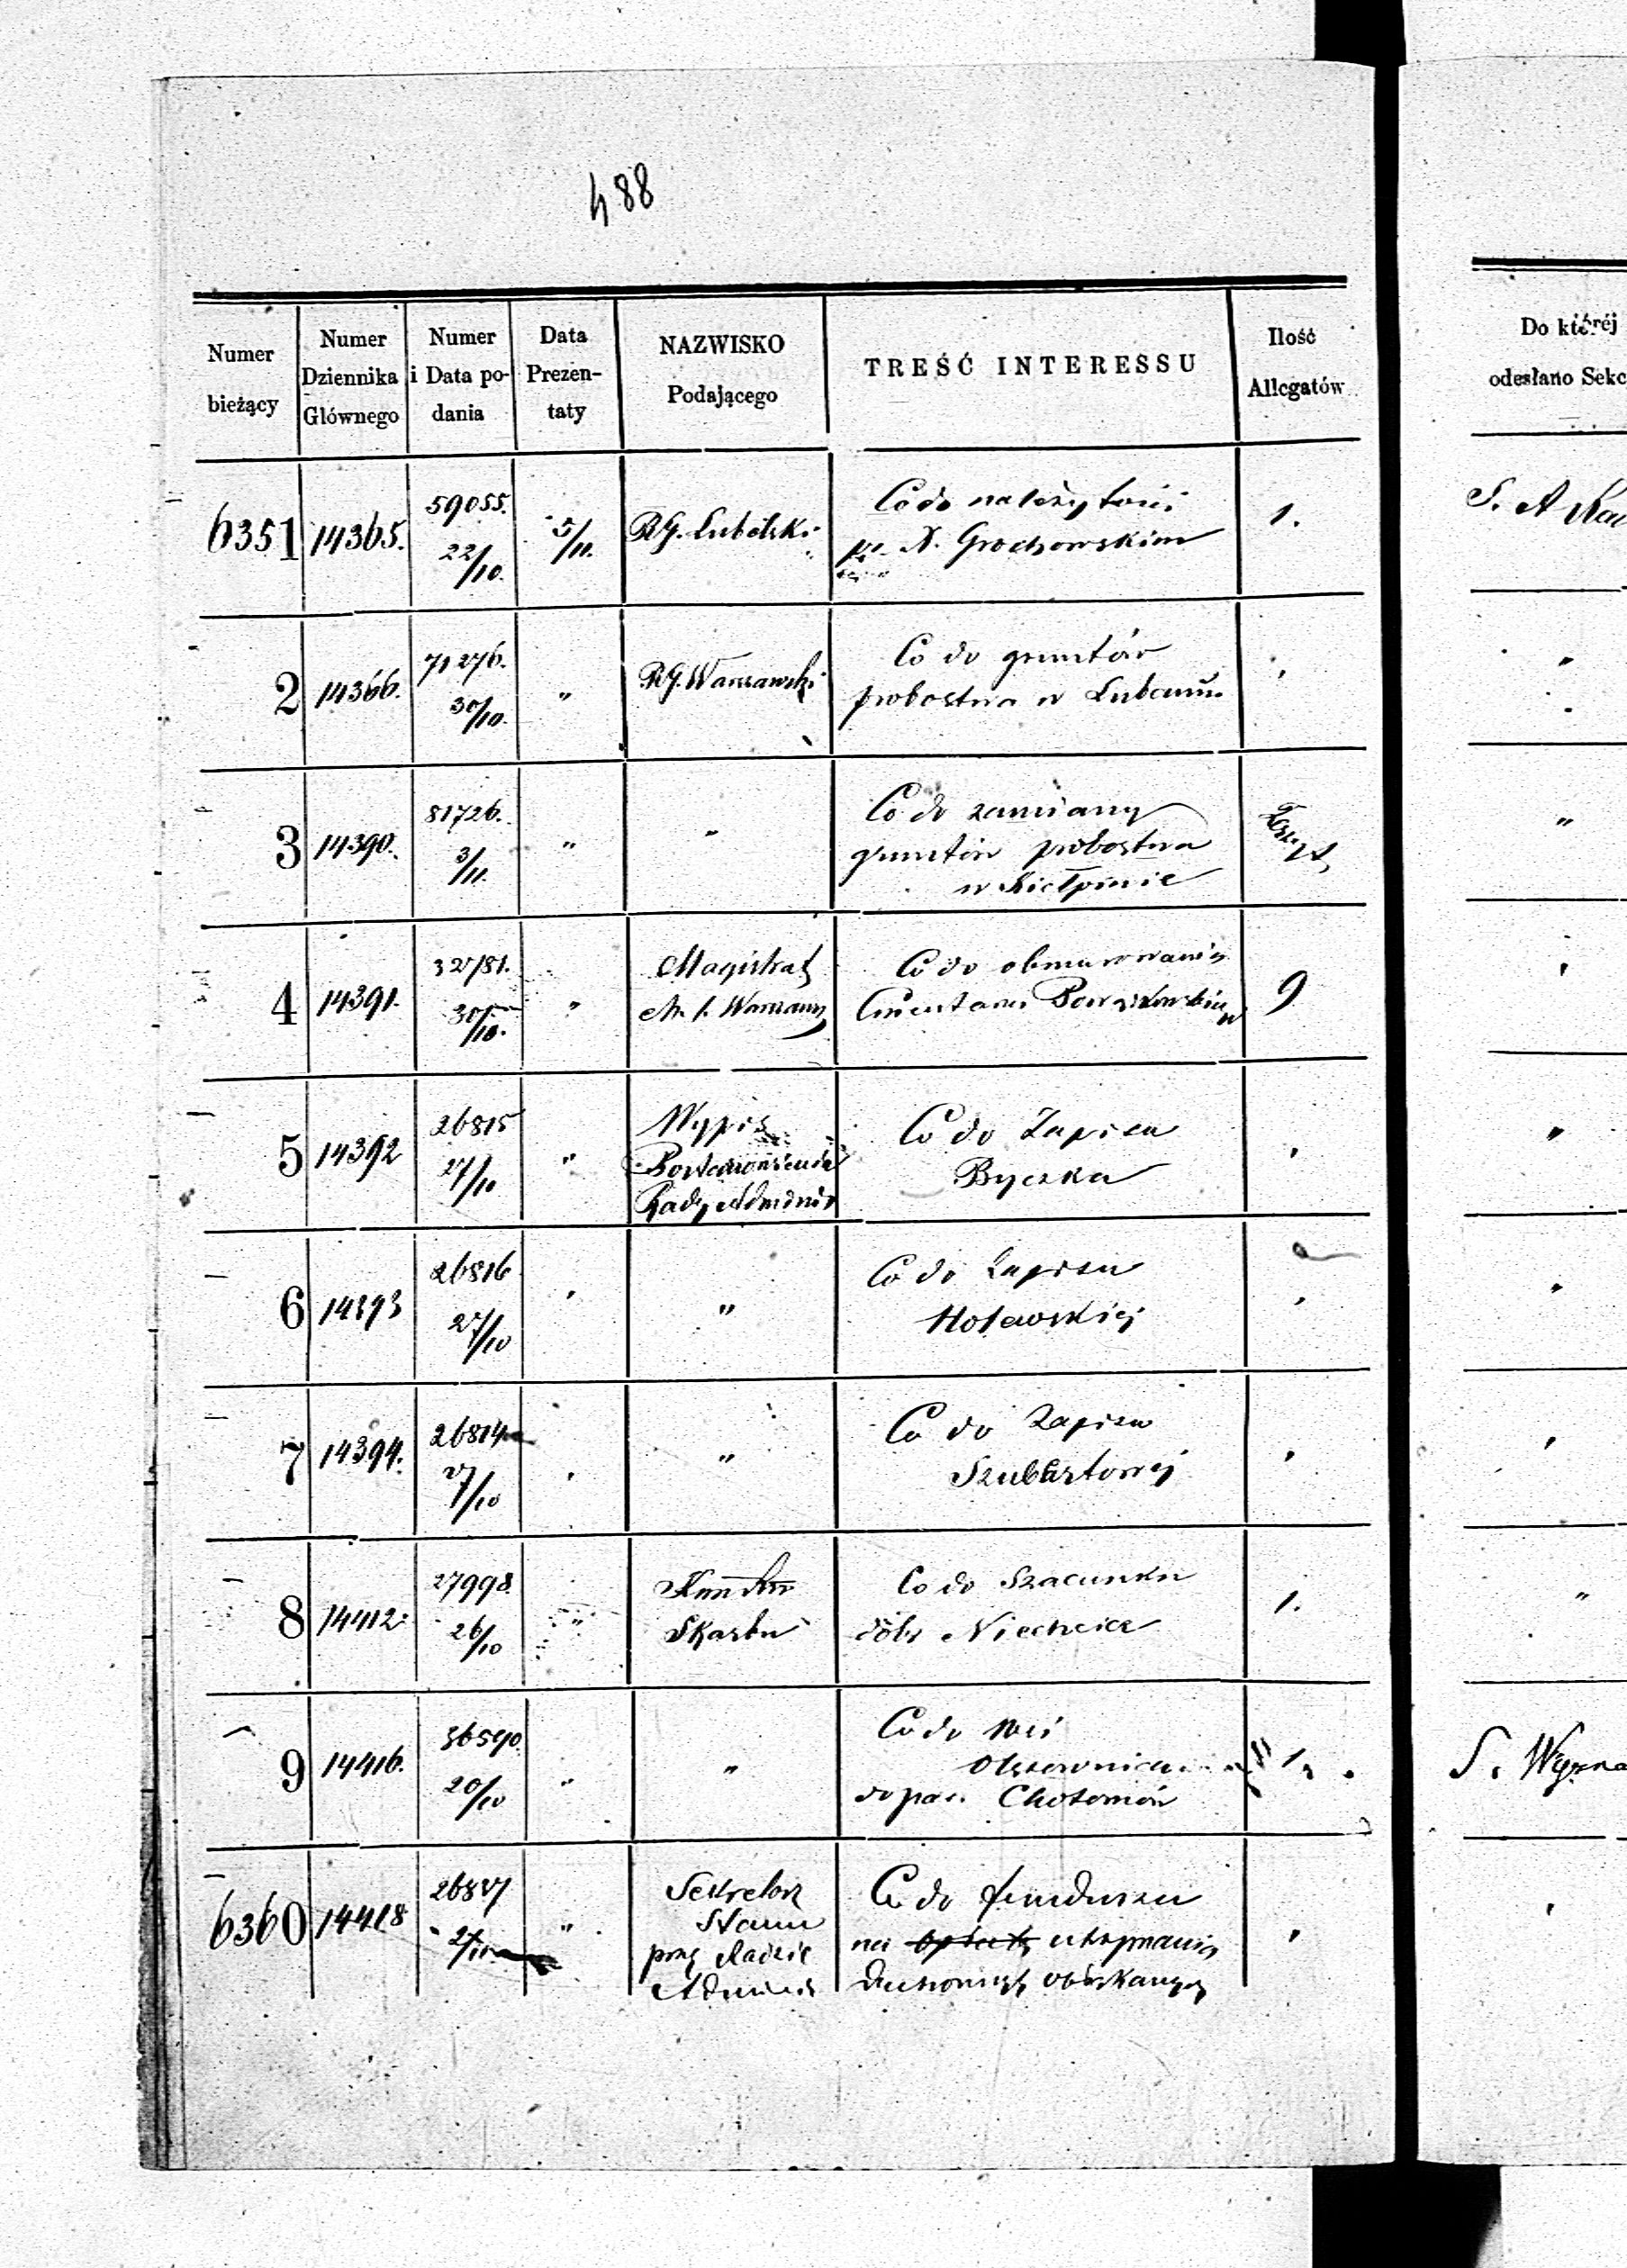 488
Numer bieżący
Numer Dziennika Głównego
Numer i Data podania
Data Prezentaty
NAZWISKO Podającego
TREŚĆ INTERESSU
Ilość Allegatów
Do któréj odesłano Sekc
6351 14365. 59055. 22/10. 5/11. RG. Lubelski Co do należytości 1. S. A
N. Grochowskim
2 14366. 71276. 30/10. " RG. Warszawski Co do gruntów "
probostwa w
3 14390. 81726. 3/11. " " Co do zamiany "
gruntów probostwa
w Kiełpinie
4 14391. 32781. 30/10. " Magistrat Co do obmurowania 9
M. s. Warszawy Cmentarza Powązkowskiego
5 14392 26815 27/10 " Wypis Co do Zapisu "
Postanowienia Byczka
Rady Adminis
6 14393 26816 27/10 " " Co do Zapisu "
7 14394. 26814 27/10 " " Co do Zapisu
8 14412. 27998. 26/10 " Skarbu Co do Szacunku 1. "
dóbr Niechcice
9 14416. 36590. 20/10 " " Co do wsi 1. S. Wyzna
do par. Chotomów
6360 14418 26827 2/11 " Sekretarz Co do funduszu
Stanu na opłatę utrzymania
przy Radzie Duchownych
Adminis